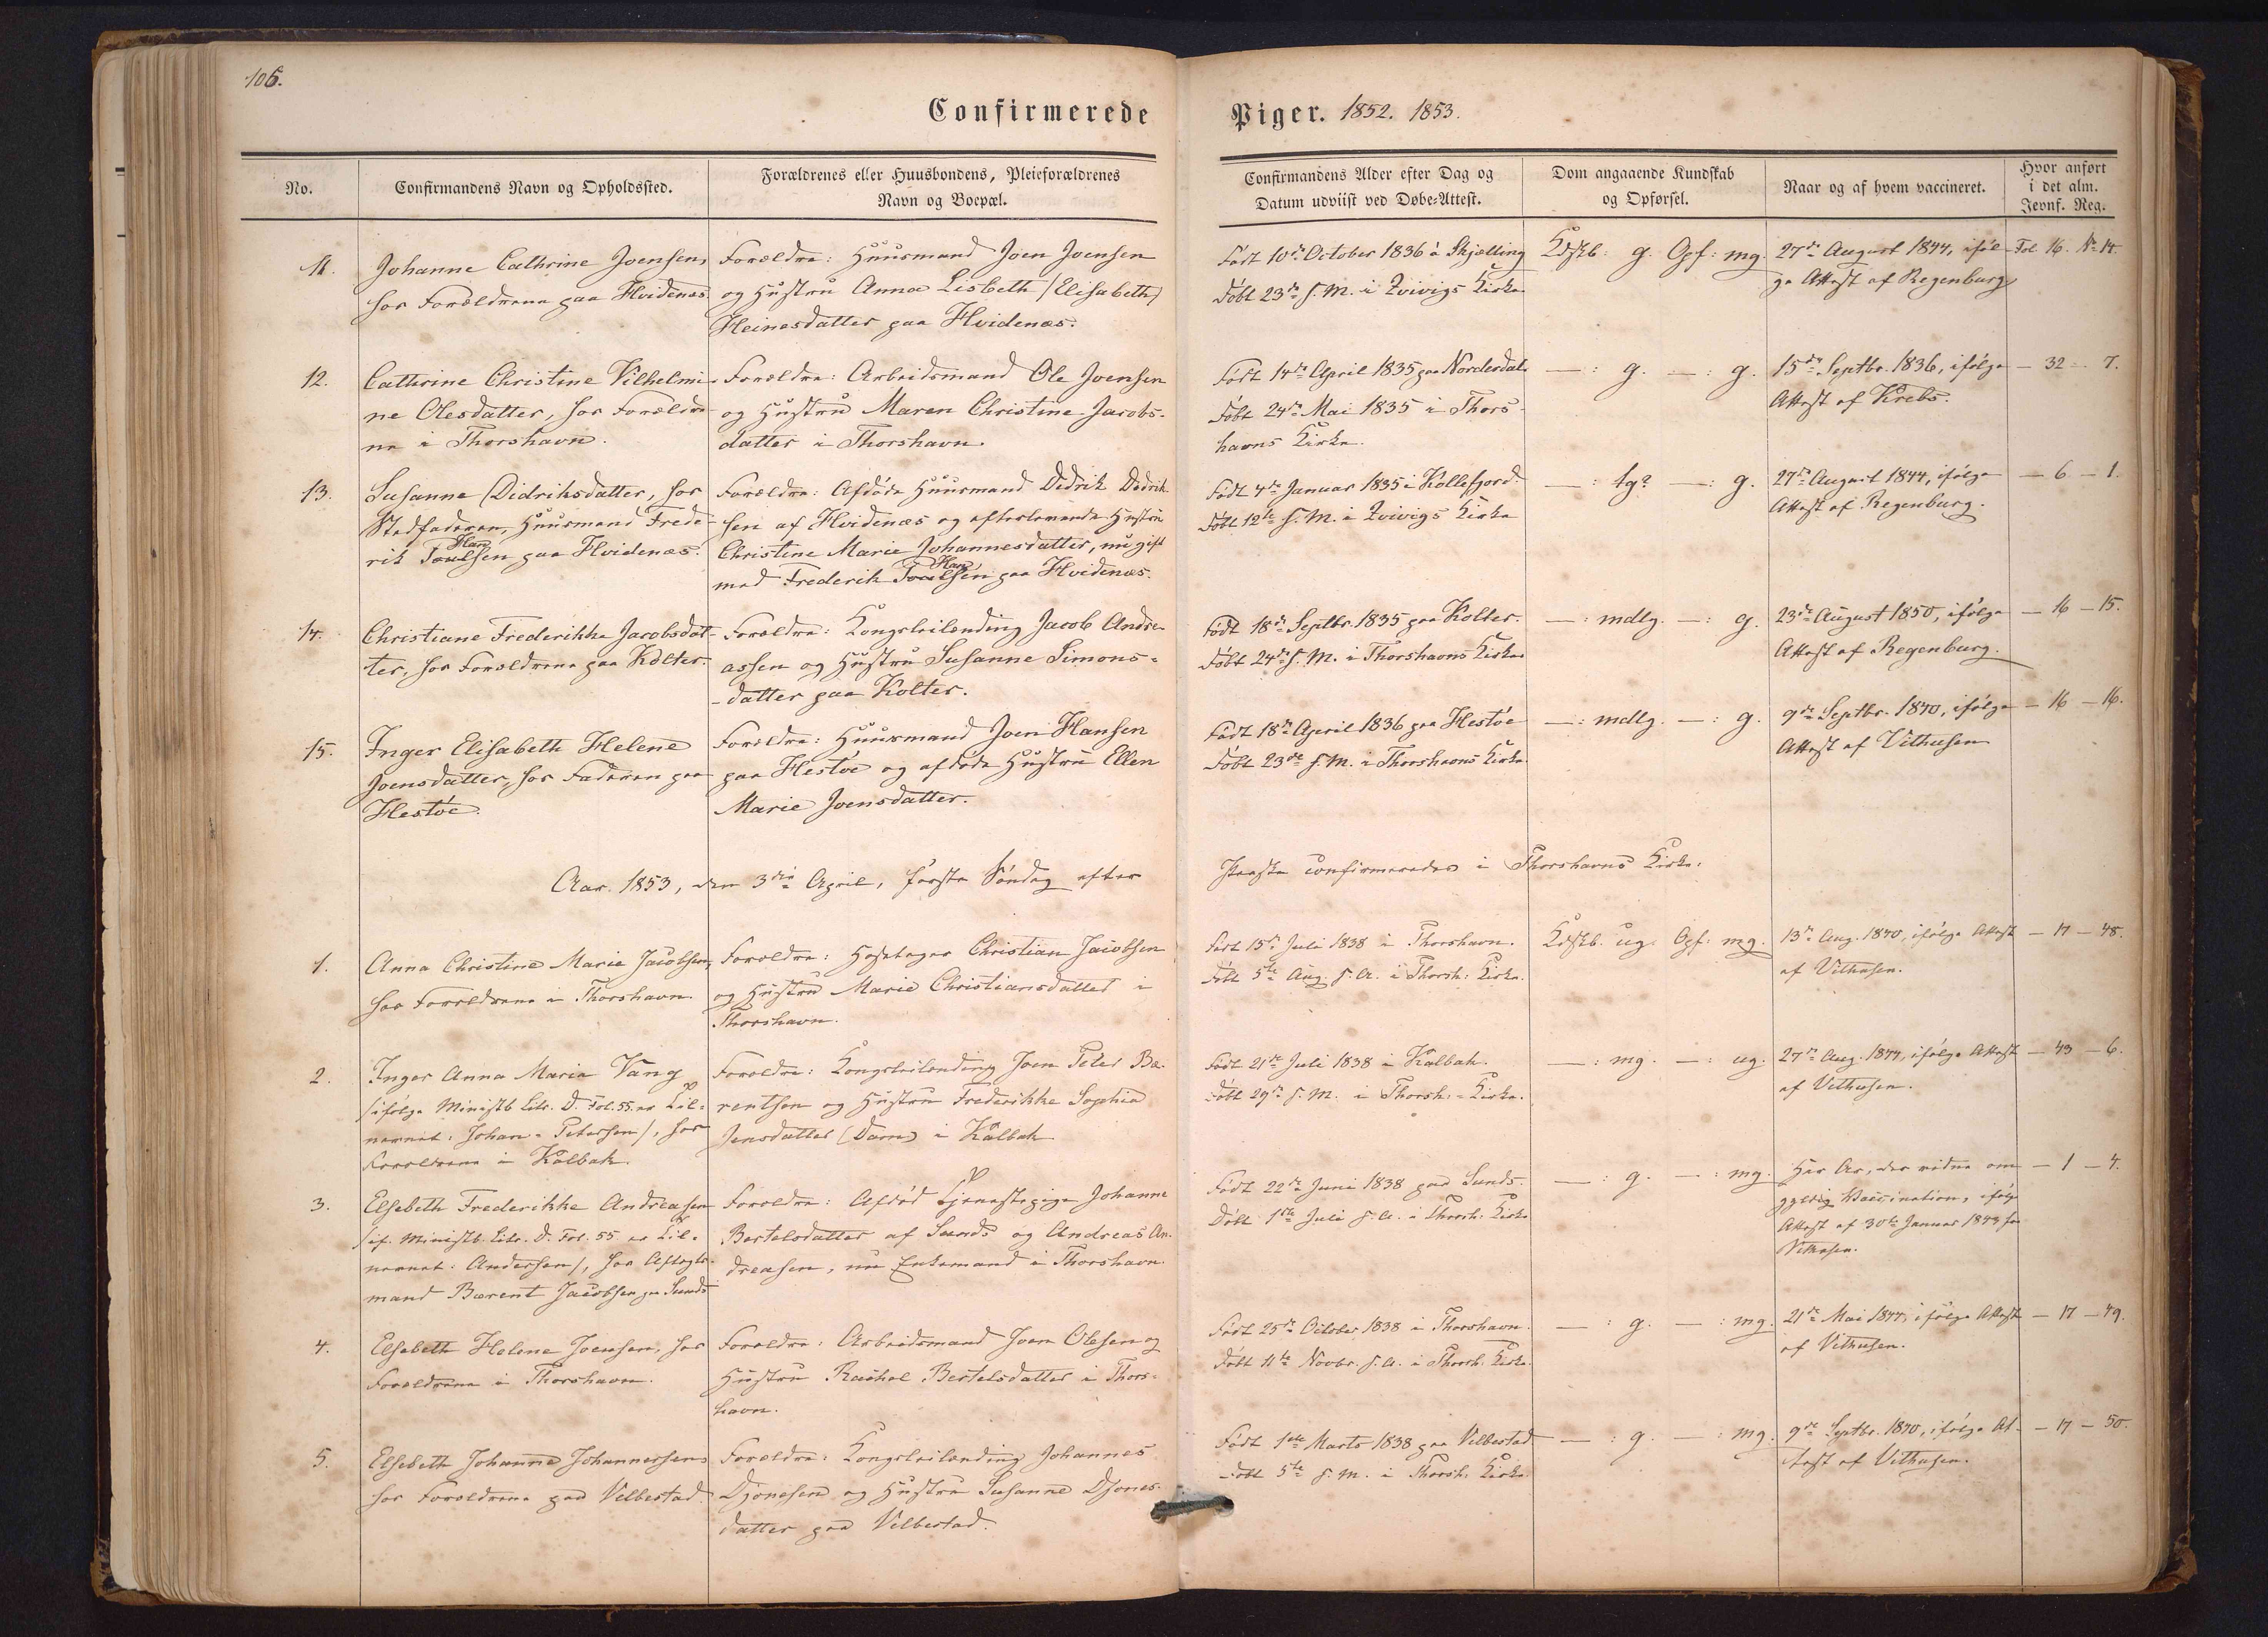 106.
Confirmerede
No.
Confirmandens Navn og Opholdssted.
Forældrenes eller Huusbondens, Pleieforældrenes
Navn og Boepæl.
11.
Johanne Cathrine Joensen,
hos Forældrene paa Hvidenæs.
Forældre: Huusmand Joen Joensen
og Hustru Anna Lisbeth /Elisabeth/
Heinesdatter paa Hvidenæs.
12.
Cathrine Christine Vilhelmi-
ne Olesdatter, hos Forældre-
ne i Thorshavn.
Forældre: Arbeidsmand Ole Joensen
og Hustru Maren Christine Jacobs-
datter i Thorshavn.
13.
Susanne Didriksdatter, hos
Stedfaderen, Huusmand Frede-
rik Poulsen paa Hvidenæs.
Forældre: Afdøde Huusmand Didrik Didrik-
sen af Hvidenæs og efterlevende Hustru
Christine Marie Johannesdatter, nu gift
med Frederik Poulsen paa Hvidenæs.
14.
Christiane Frederikke Jacobsdat-
ter, hos Forældrene paa Kolter.
Forældre: Kongsleilænding Jacob Andre-
assen og Hustru Susanne Simons-
-datter paa Kolter.
15.
Inger Elisabeth Helene
Joensdatter, hos Faderen paa
Hestøe.
Forældre: Huusmand Joen Hansen
paa Hestøe og afdøde Hustru Ellen
Marie Joensdatter.
Aar. 1853, den 3die April, første Søndag efter
1.
Anna Christine Marie Jacobsen,
hos Forældrene i Thorshavn.
Forældre: Christian Jacobsen
og Hustru Marie Christiansdatter i
Thorshavn.
2.
Inger Anna Maria Vang
/ifølge Ministb. Litr. D. Fol. 55. er Til-
navnet: Johan-Petersen/, hos
Forældrene i Kalbak.
Forældre: Kongsleilænding Joen Peter Bæ-
rentsen og Hustru Frederikke Sophia
Jensdatter (Dam) i Kalbak
3.
Elsebeth Frederikke Andreasen
/if. Ministb. Litr. D. Fol. 55 er Til-
navnet: Andersen/, hos Aftægts-
mand Bærent Jacobsen paa Sunds
Forældre: Afdød Tjenestepige Johanne
Bertelsdatter af Sunds og Andreas An-
dreasen, nu Enkemand i Thorshavn.
4.
Elsebeth Helene Joensen, hos
Forældrene i Thorshavn.
Forældre: Arbeidsmand Joen Olesen og
Hustru Rachel Bertelsdatter i Thors-
havn.
5.
Elsebeth Johanne Johannessen,
hos Forældrene paa Velbestad.
Forældre: Kongsleilænding Johannes
Djonesen og Hustru Susanne Djones-
datter paa Velbestad.
Piger. 1852. 1853.
Confirmandens Alder efter Dag og
Datum udviist ved Døbe-Attest.
Dom angaaende Kundskab
og Opførsel.
Naar og af hvem vaccineret.
Hvor anført
i det alm.
Jevnf. Reg.
Født 10de October 1836 á Skjelling
Døbt 23de s. M. i Qvivigs Kirke
Kdskb: g. Opf: mg.
27de August 1844, iføl-
ge Attest af Regenburg
Fol. 16. No 14.
Født 14de April 1835 paa Nordredal.
Døbt 24de Mai 1835 i Thors-
havns Kirke.
—: g. —: g.
15de Septbr. 1836, ifølge
Attest af Krebs.
— 32 - 7.
Født 4de Januar 1835 i Kollefjord.
Døbt 12te s. M. i Qvivigs Kirke
—: tg? —: g.
27de August 1844, ifølge
Attest af Regenburg.
— 6 — 1.
Født 18de Septbr 1835 paa Kolter.
Døbt 24de s. M. i Thorshavns Kirke
—: mdlg. —: g.
23de August 1850, ifølge
Attest af Regenburg.
— 16 — 15.
Født 18de April 1836 paa Hestøe
Døbt 23de s. M. i Thorshavns Kirke
—: mdlg. —: g.
9de Septbr. 1840, ifølge
Attest af Vithusen
— 16 — 16.
Paaske confirmeredes i Thorshavns Kirke.
Født 15de Juli 1838 i Thorshavn.
Døbt 5te Aug. s. A. i Thorsh: Kirke.
Kdskb. ug. Opf: mg.
13de Aug. 1840, ifølge Attest
af Vithusen.
— 17 — 48.
Født 21de Juli 1838 i Kalbak.
Døbt 29de s. M. i Thorsh: Kirke.
—: mg. —: ug.
27de Aug. 1844, ifølge Attest
af Vithusen.
— 43 — 6.
Født 22de Juni 1838 paa Sunds.
Døbt 1ste Juli s. A. i Thorsh. Kirke
—: g. —: mg.
Har Ar, der vidne om
gyldig Vaccination, ifølge
Attest af 30te Januar 1843 fra
Vithusen.
— 1 — 4.
Født 25de October 1838 i Thorshavn.
Døbt 11te Novbr. s. A. i Thorsh. Kirke.
—: g. —: mg.
21de Mai 1844, ifølge Attest
af Vithusen.
— 17 — 49.
Født 1ste Marts 1838 paa Velbestad
Døbt 5te s. M. i Thorsh. Kirke.
—: g. —: mg.
9de Septbr. 1840, ifølge At-
test af Vithusen.
— 17 — 50.